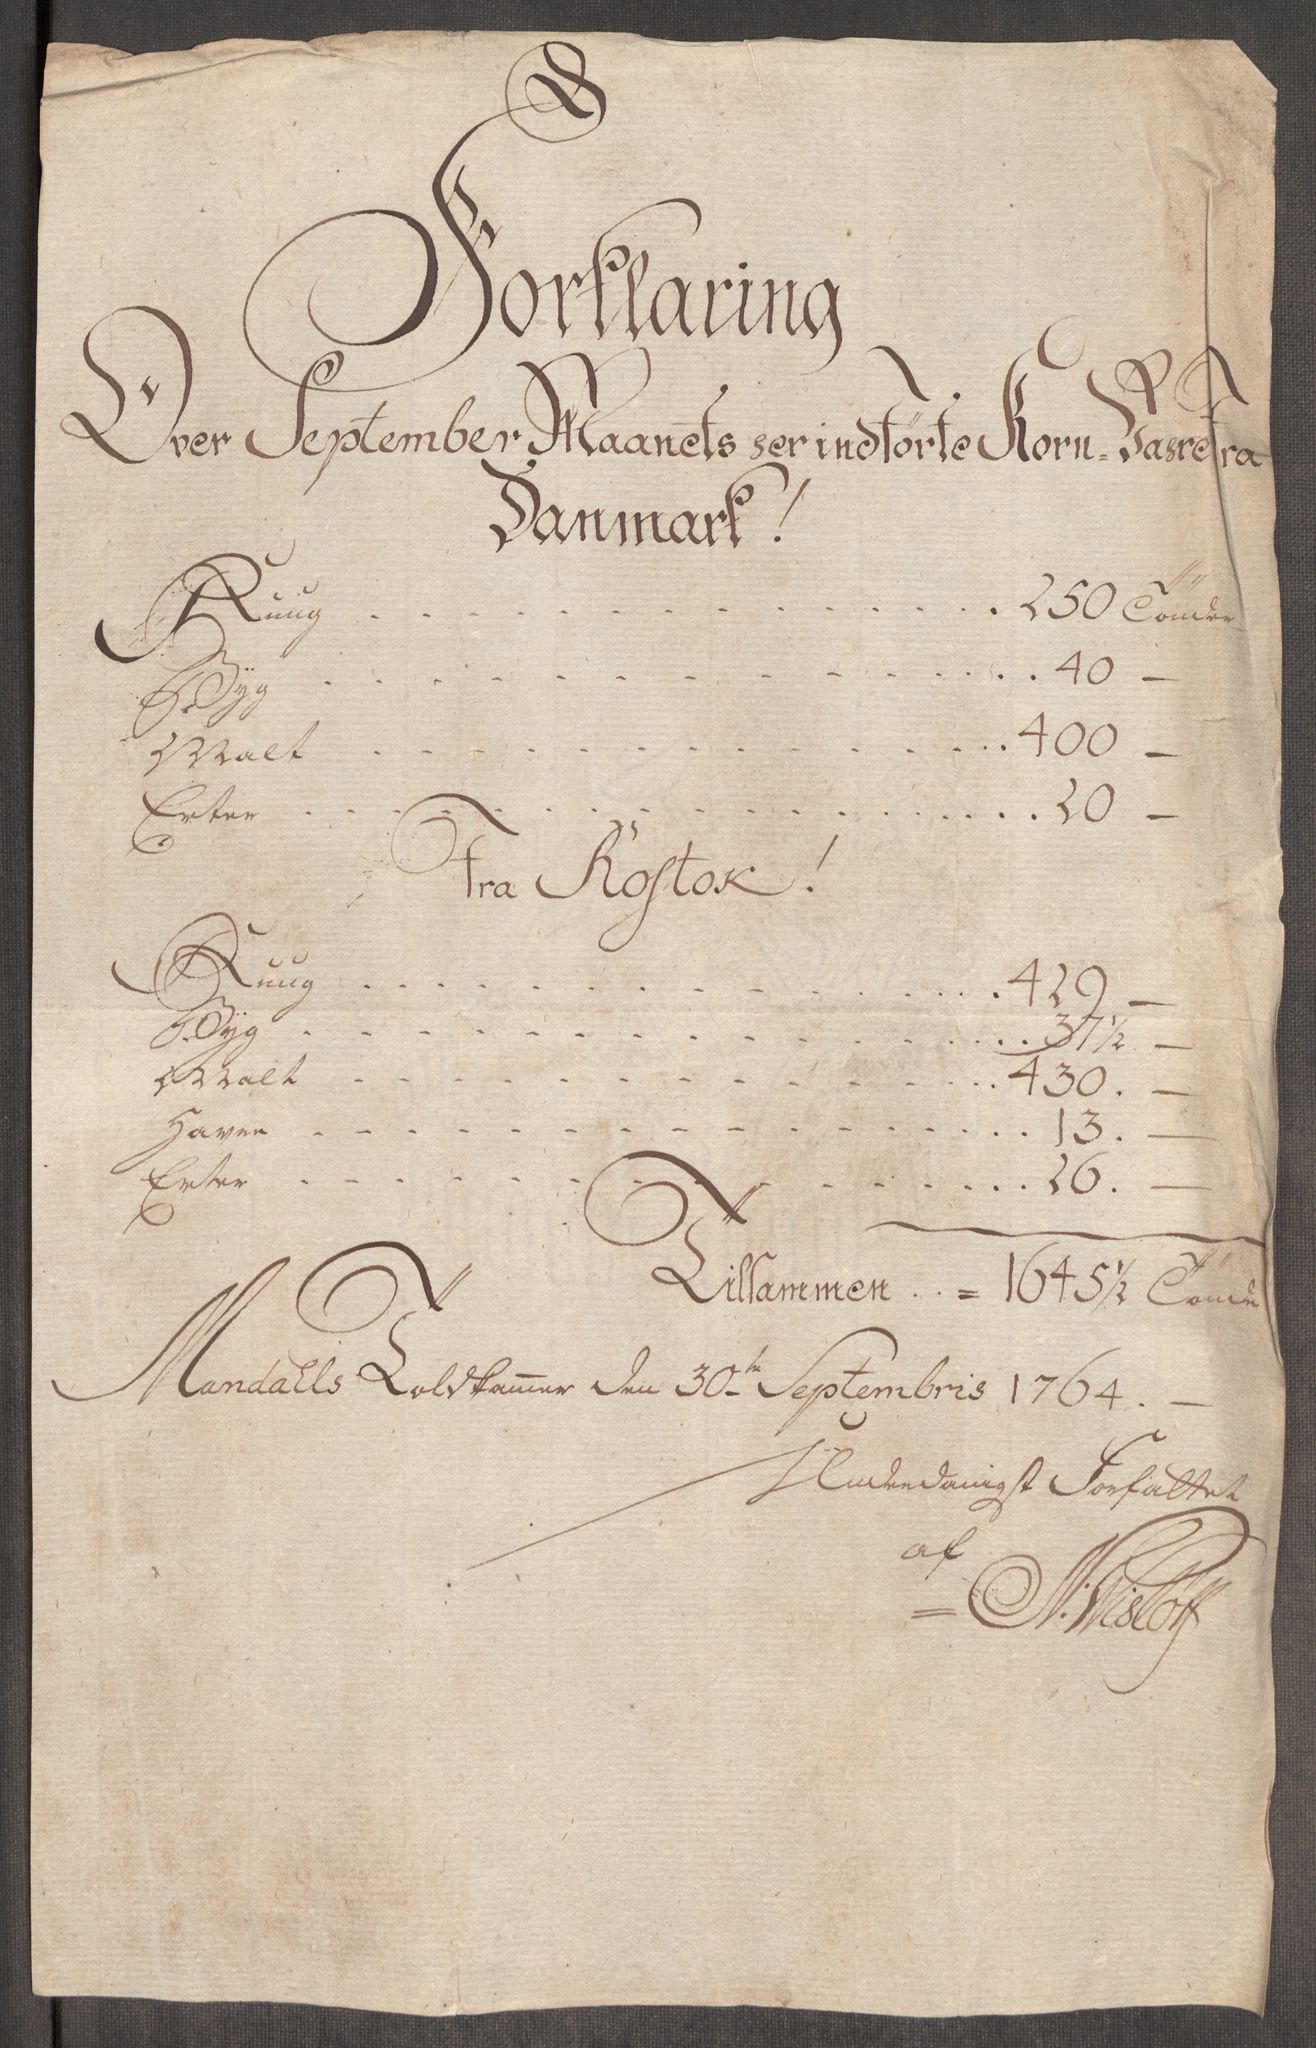 Forklaring
Over September Maanets her indførte Korn=Vahre fra
Danmark!
Ruug . . . 250 Tönder
Byg . . . 40 —
Malt . . . 400 —
Erter . . . 20 —
Fra Rostok!
Ruug . . . 429 —
Byg . . . 37½ —
Malt . . . 430. —
Havre . . . 13. —
Erter . . . 26. —
Tilsammen . . = 1645½ Tönder
Mandals Toldkammer den 30te Septembris 1764. —
Underdanigst Forfattet
af
= N: Wisløff